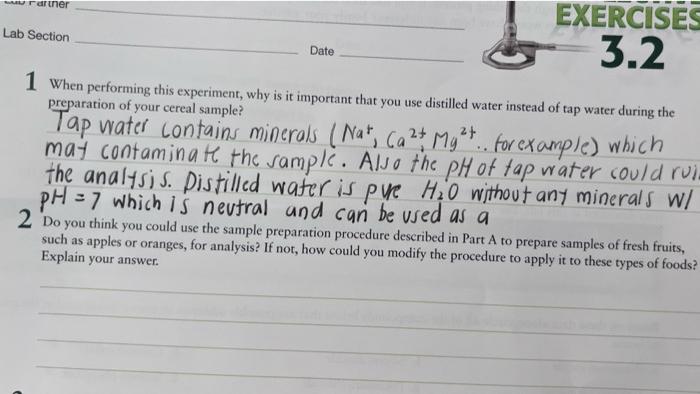 Lab Partner
EXERCISES
3.2
Lab Section
Date
1 When performing this experiment, why is it important that you use distilled water instead of tap water during the
preparation of your cereal sample?
Tap water contains minerals (Na⁺, Ca²⁺, Mg²⁺.. for example) which
may contaminate the sample. Also the pH of tap water could rui
the analysis. Distilled water is pure H₂O without any minerals w/
pH = 7 which is neutral and can be used as a
2 Do you think you could use the sample preparation procedure described in Part A to prepare samples of fresh fruits,
such as apples or oranges, for analysis? If not, how could you modify the procedure to apply it to these types of foods?
Explain your answer.